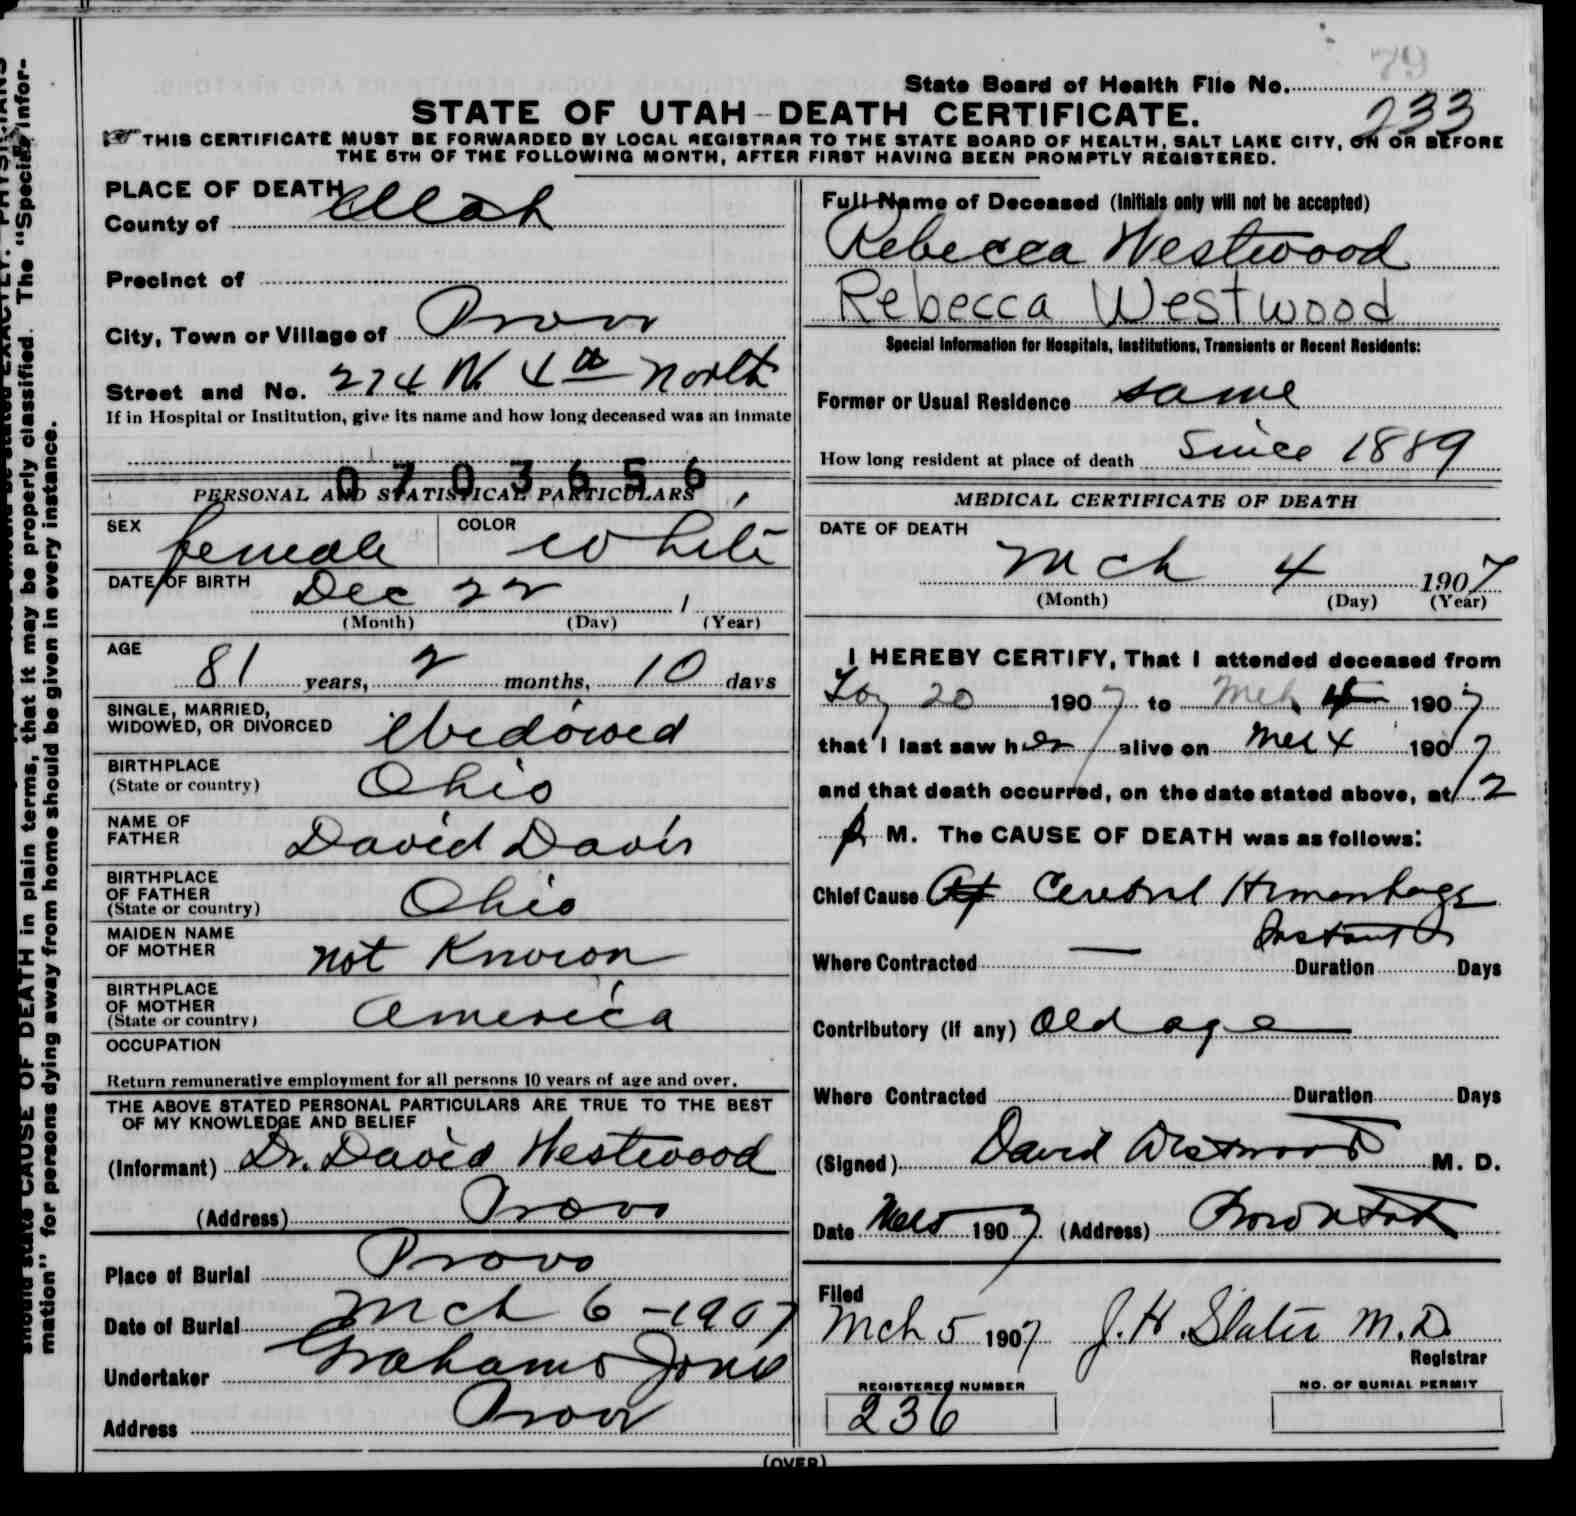 79
State Board of Health File No. 233
STATE OF UTAH—DEATH CERTIFICATE.
THIS CERTIFICATE MUST BE FORWARDED BY LOCAL REGISTRAR TO THE STATE BOARD OF HEALTH, SALT LAKE CITY, ON OR BEFORE
THE 5TH OF THE FOLLOWING MONTH, AFTER FIRST HAVING BEEN PROMPTLY REGISTERED.
PLACE OF DEATH
County of Utah
Precinct of
City, Town or Village of Provo
Street and No. 274 W. 4th North
If in Hospital or Institution, give its name and how long deceased was an inmate
0703656
PERSONAL AND STATISTICAL PARTICULARS
SEX female COLOR White
DATE OF BIRTH Dec 22 1
(Month) (Day) (Year)
AGE
81 years, 2 months, 10 days
SINGLE, MARRIED,
WIDOWED, OR DIVORCED Widowed
BIRTHPLACE
(State or country) Ohio
NAME OF
FATHER David Davis
BIRTHPLACE
OF FATHER
(State or country) Ohio
MAIDEN NAME
OF MOTHER not Known
BIRTHPLACE
OF MOTHER
(State or country) America
OCCUPATION
Return remunerative employment for all persons 10 years of age and over.
THE ABOVE STATED PERSONAL PARTICULARS ARE TRUE TO THE BEST
OF MY KNOWLEDGE AND BELIEF
(Informant) Dr. David Westwood
(Address) Provo
Place of Burial Provo
Date of Burial Mch 6 - 1907
Undertaker Graham & Jones
Address Provo
Full Name of Deceased (Initials only will not be accepted)
Rebecca Westwood
Rebecca Westwood
Special Information for Hospitals, Institutions, Transients or Recent Residents:
Former or Usual Residence same
How long resident at place of death Since 1889
MEDICAL CERTIFICATE OF DEATH
DATE OF DEATH
Mch 4 1907
(Month) (Day) (Year)
I HEREBY CERTIFY, That I attended deceased from
20 1907 to Mch 4 1907
that I last saw her alive on Mch 4 1907
and that death occurred, on the date stated above, at 12
P M. The CAUSE OF DEATH was as follows:
Chief Cause Cerebral Hemorhage
Where Contracted — Duration Days
Contributory (if any) Old age
Where Contracted Duration Days
(Signed) David Westwood M. D.
Date Mch 5 1907 (Address) Provo Utah
Filed
Mch 5 1907 J. H. Slater M.D.
Registrar
REGISTERED NUMBER
236
NO. OF BURIAL PERMIT
(OVER)
should state CAUSE OF DEATH in plain terms, that it may be properly classified. The "Special Infor-
mation" for persons dying away from home should be given in every instance.